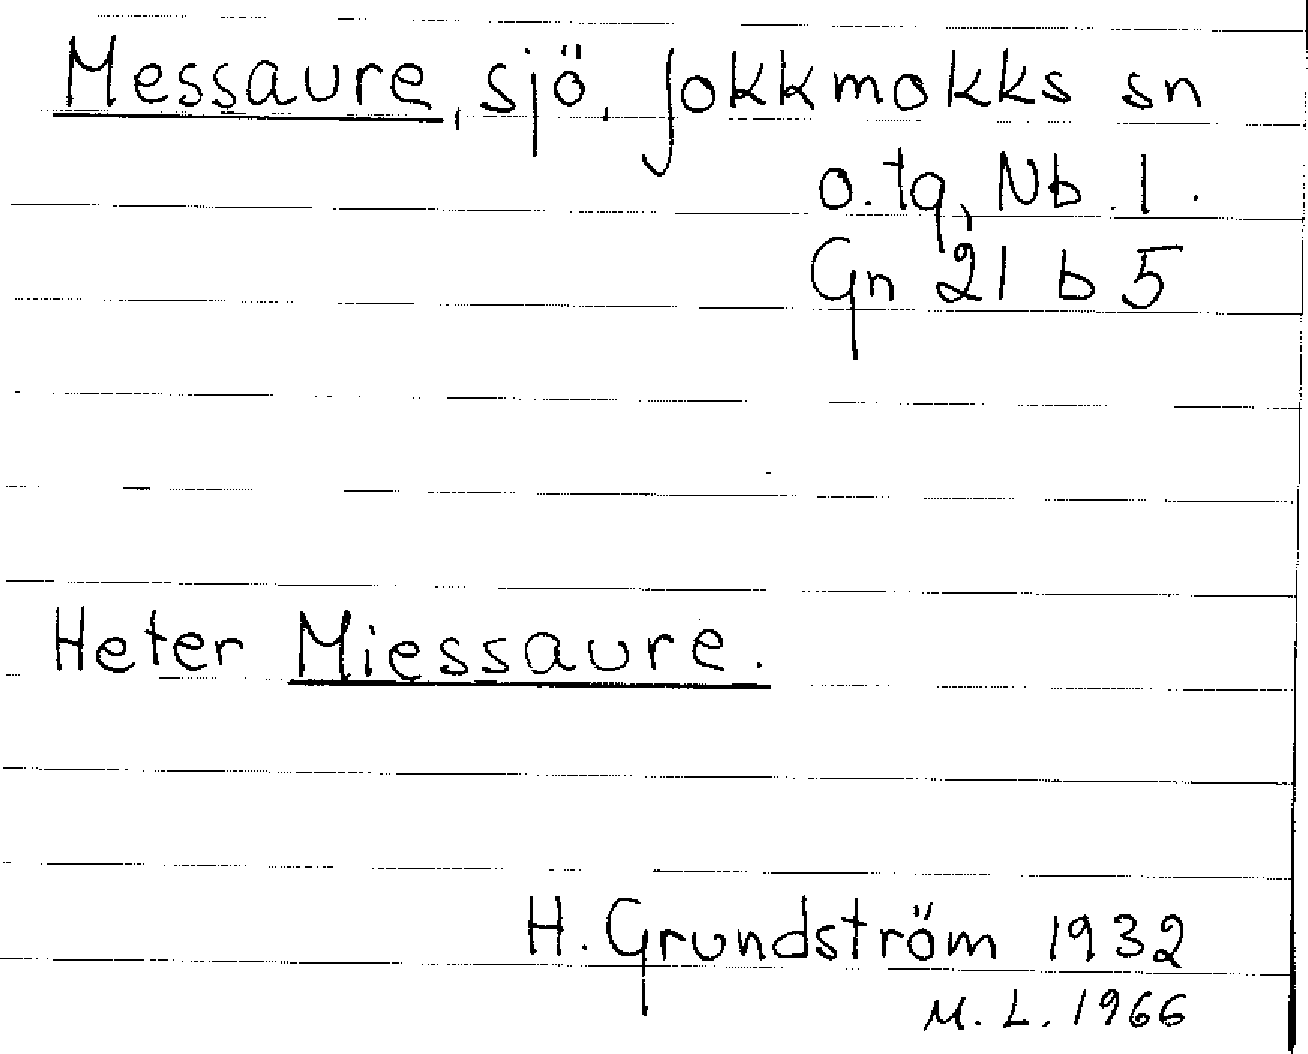 Messaure, sjö, Jokkmokks sn
o. tg, Nb. l.
Gn 21 b 5
Heter Miessaure.
H. Grundström 1932
M. L. 1966